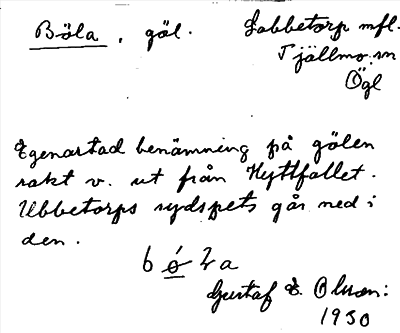 Böla, göl. Labbetorp mfl.
Tjällmo sn
Ögl
Egenartad benämning på gölen
rakt v. ut från Hyttfallet.
Ubbetorps sydspets går ned i
den.
Gustaf E. Olsson:
1930